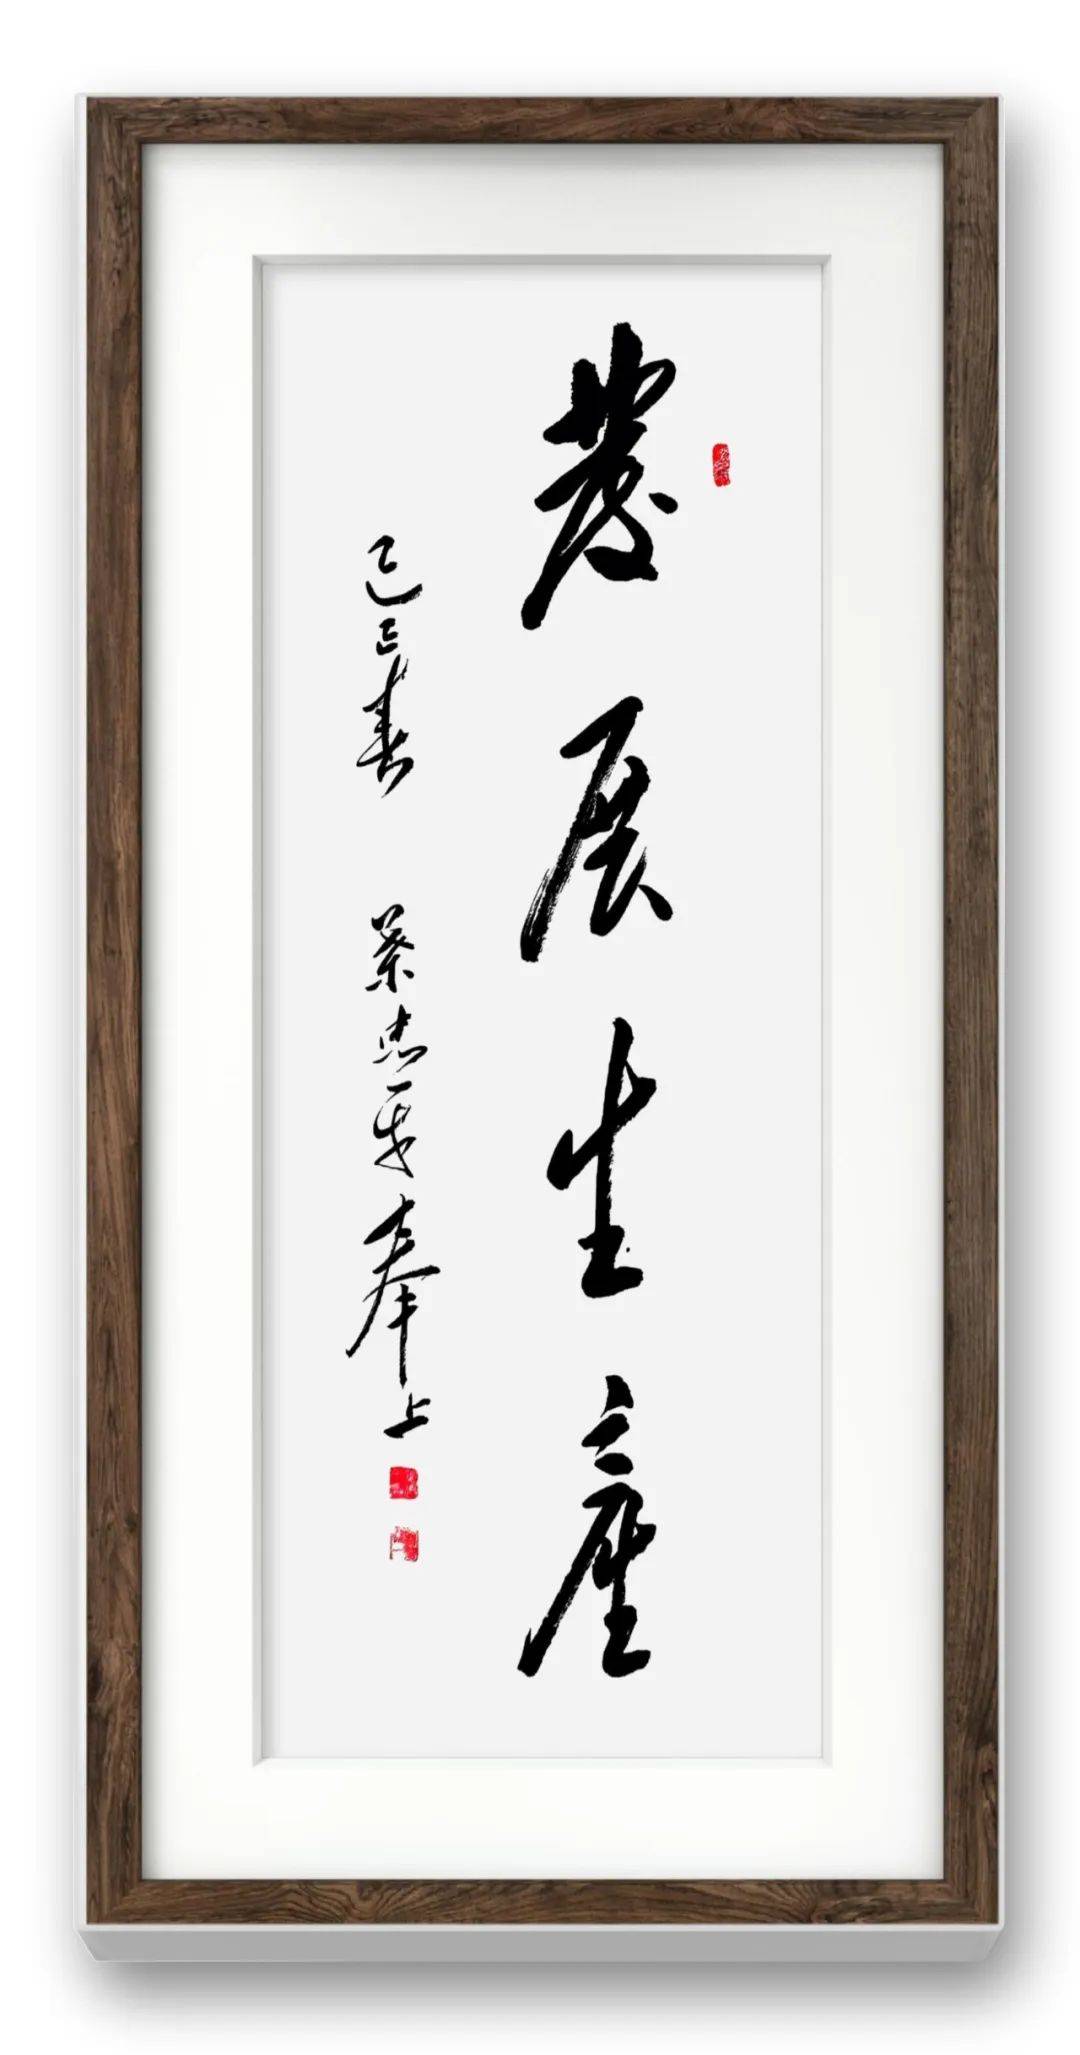 發展生產
乙巳春 蔡忠平奉上